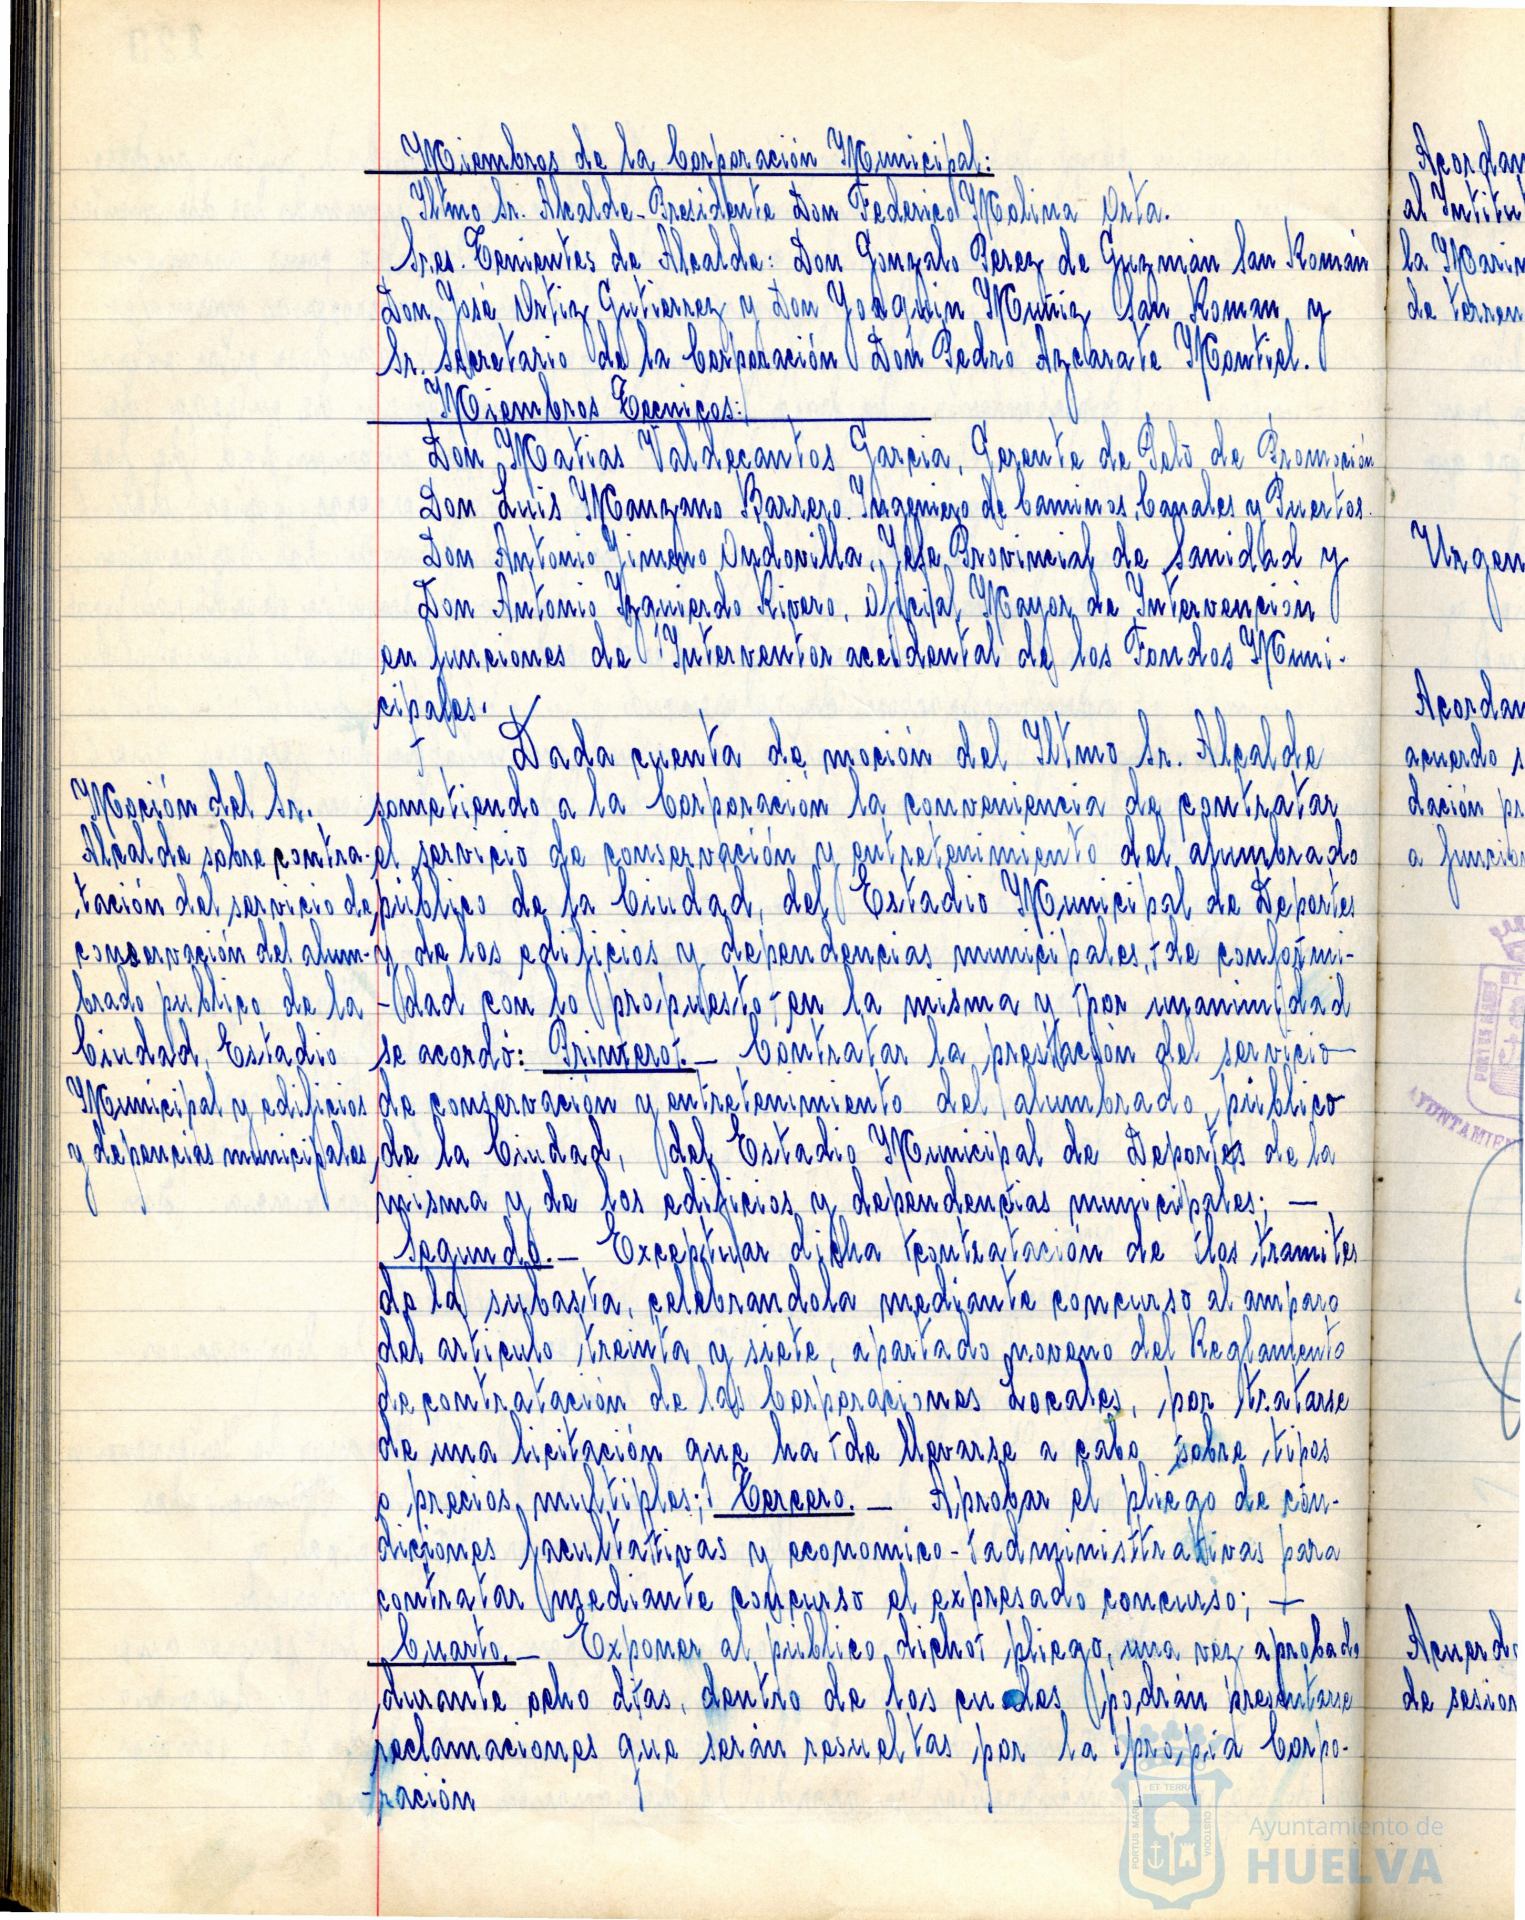 Miembros de la Corporación Municipal:
Iltmo Sr. Alcalde-Presidente Don Federico Molina Orta.
Sres. Tenientes de Alcalde: Don Gonzalo Perez de Guzmán San Román
Don José Ortiz Gutierrez y Don Joaquin Muñiz San Roman y
Sr. Secretario de la Corporación Don Pedro Azcarate Montiel.
Miembros Tecnicos:
Don Matias Valdecantos Garcia, Gerente de Polo de Promoción
Don Luis Manzano Barrero. Ingeniero de Caminos, Canales y Puertos.
Don Antonio Jimeno Ondovilla, Jefe Provincial de Sanidad y
Don Antonio Izquierdo Rivero, Oficial Mayor de Intervención
en funciones de Interventor accidental de los Fondos Muni-
cipales.
Dada cuenta de moción del Iltmo Sr. Alcalde
sometiendo a la Corporación la conveniencia de contratar
el servicio de conservación y entretenimiento del alumbrado
público de la Ciudad, del Estadio Municipal de Deportes
y de los edificios y dependencias municipales, de conformi-
-dad con lo propuesto en la misma y por unanimidad
se acordó: Primero.- Contratar la prestación del servicio
de conservación y entretenimiento del alumbrado público
de la Ciudad, del Estadio Municipal de Deportes de la
misma y de los edificios y dependencias municipales; —
Segundo.- Exceptuar dicha contratación de los tramites
de la subasta, celebrandola mediante concurso al amparo
del articulo treinta y siete, apartado noveno del Reglamento
de contratación de las Corporaciones Locales, por tratarse
de una licitación que ha de llevarse a cabo sobre tipos
o precios multiples; Tercero.- Aprobar el pliego de con-
diciones facultativas y economico-administrativas para
contratar mediante concurso el expresado concurso; —
Cuarto.- Exponer al público dicho pliego, una vez aprobado
durante ocho dias, dentro de los cuales podrán presentarse
reclamaciones que serán resueltas por la propia Corpo-
-ración
Moción del Sr.
Alcalde sobre contra-
tación del servicio de
conservación del alum-
brado publico de la
Ciudad, Estadio
Municipal y edificios
y depencias municipales
Acordan
al Intitut
la Marin
de terren
Urgen
Acordan
acuerdo s
dación pr
a funcion
AYUNTAMIE
Acuerdo
de sesion
ET TERRA
PORTUS MARIS
CUSTODIA
Ayuntamiento de
HUELVA